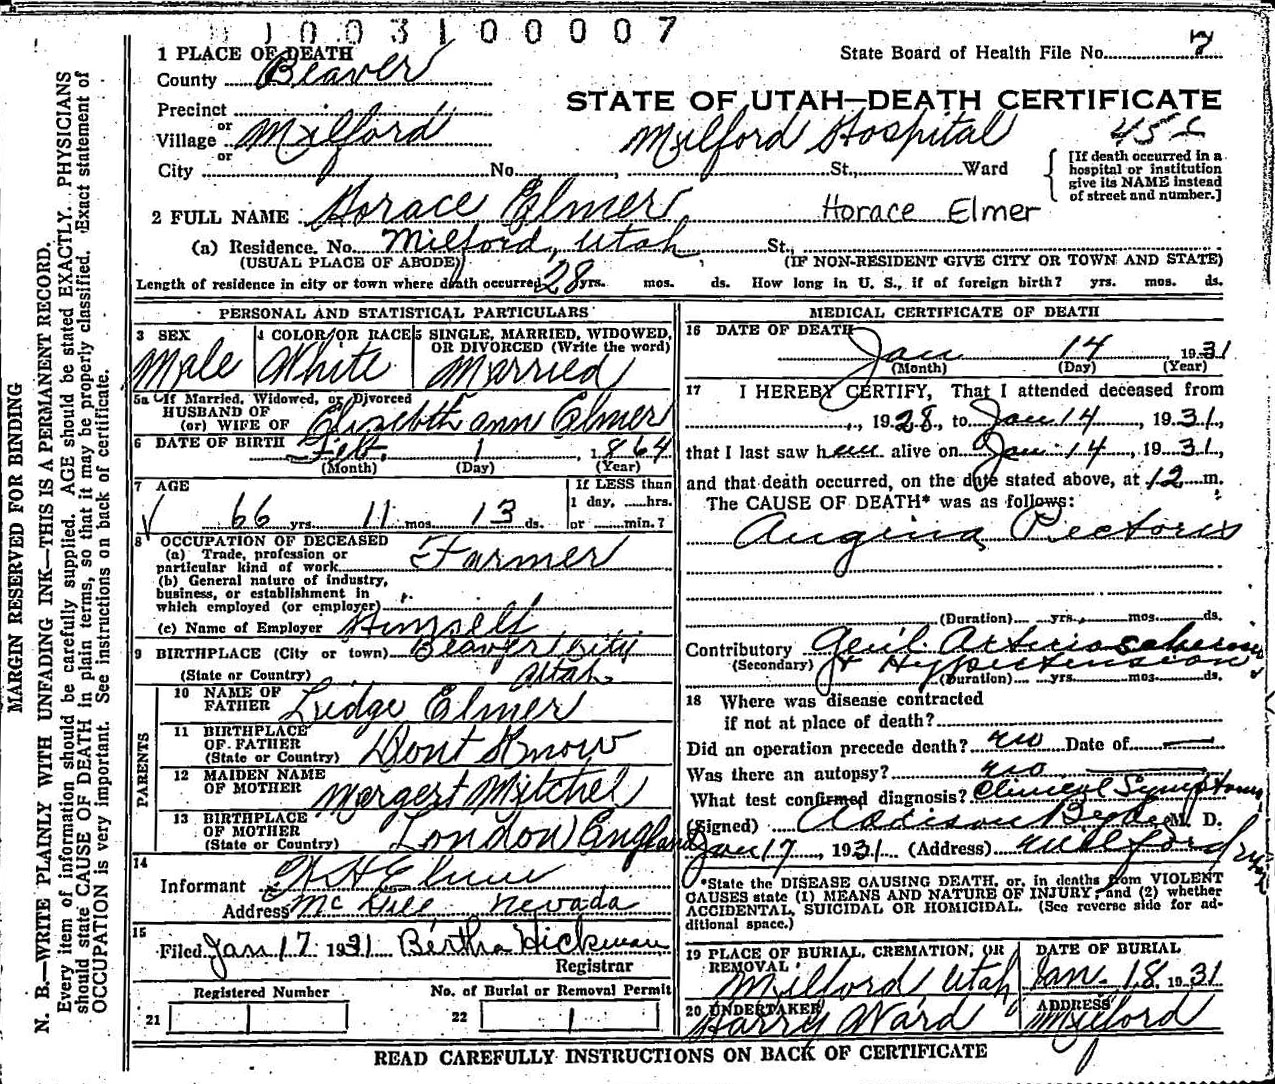 1003100007
1 PLACE OF DEATH
State Board of Health File No. 7
County Beaver
STATE OF UTAH—DEATH CERTIFICATE
Precinct
or
Village Milford
Milford Hospital
or
City No. , St., Ward
[If death occurred in a
hospital or institution
give its NAME instead
of street and number.]
2 FULL NAME Horace Elmer Horace Elmer
(a) Residence. No. Milford, Utah St.,
(USUAL PLACE OF ABODE) (IF NON-RESIDENT GIVE CITY OR TOWN AND STATE)
Length of residence in city or town where death occurred 28 yrs. mos. ds. How long in U. S., if of foreign birth? yrs. mos. ds.
PERSONAL AND STATISTICAL PARTICULARS
3 SEX
Male
4 COLOR OR RACE
White
5 SINGLE, MARRIED, WIDOWED,
OR DIVORCED (Write the word)
Married
5a If Married, Widowed, or Divorced
HUSBAND OF
(or) WIFE OF Elizabeth Ann Elmer
6 DATE OF BIRTH Feb. 1, 1864
(Month) (Day) (Year)
7 AGE
66 yrs. 11 mos. 13 ds.
If LESS than
1 day, hrs.
or min.?
8 OCCUPATION OF DECEASED
(a) Trade, profession or
particular kind of work Farmer
(b) General nature of industry,
business, or establishment in
which employed (or employer)
(c) Name of Employer Himself
9 BIRTHPLACE (City or town) Beaver City
(State or Country) Utah
PARENTS
10 NAME OF
FATHER Lidge Elmer
11 BIRTHPLACE
OF FATHER
(State or Country) Dont Know
12 MAIDEN NAME
OF MOTHER Margert Mitchel
13 BIRTHPLACE
OF MOTHER
(State or Country) London England
14
Informant W H Elmer
Address McGill Nevada
15
Filed Jan 17 1931 Bertha Hickman
Registrar
Registered Number No. of Burial or Removal Permit
21 22
MEDICAL CERTIFICATE OF DEATH
16 DATE OF DEATH
Jan 14, 1931
(Month) (Day) (Year)
17 I HEREBY CERTIFY, That I attended deceased from
, 1928, to Jan 14, 1931,
that I last saw him alive on Jan 14, 1931,
and that death occurred, on the date stated above, at 12 m.
The CAUSE OF DEATH* was as follows:
Angina Pectoris
(Duration) yrs. mos. ds.
Contributory Gen'l. Arterio
(Secondary) & Hypertension
(Duration) yrs. mos. ds.
18 Where was disease contracted
if not at place of death?
Did an operation precede death? no Date of —
Was there an autopsy? no
What test confirmed diagnosis? Clinical Symptoms
(Signed) Addison M. D.
Jan 17, 1931 (Address) Milford
*State the DISEASE CAUSING DEATH, or, in deaths from VIOLENT
CAUSES state (1) MEANS AND NATURE OF INJURY, and (2) whether
ACCIDENTAL, SUICIDAL OR HOMICIDAL. (See reverse side for ad-
ditional space.)
19 PLACE OF BURIAL, CREMATION, OR
REMOVAL
Milford Utah
DATE OF BURIAL
Jan. 18, 1931
20 UNDERTAKER
Harry Ward
ADDRESS
Milford
READ CAREFULLY INSTRUCTIONS ON BACK OF CERTIFICATE
MARGIN RESERVED FOR BINDING
N. B.—WRITE PLAINLY WITH UNFADING INK—THIS IS A PERMANENT RECORD.
Every item of information should be carefully supplied. AGE should be stated EXACTLY. PHYSICIANS
should state CAUSE OF DEATH in plain terms, so that it may be properly classified. Exact statement of
OCCUPATION is very important. See instructions on back of certificate.